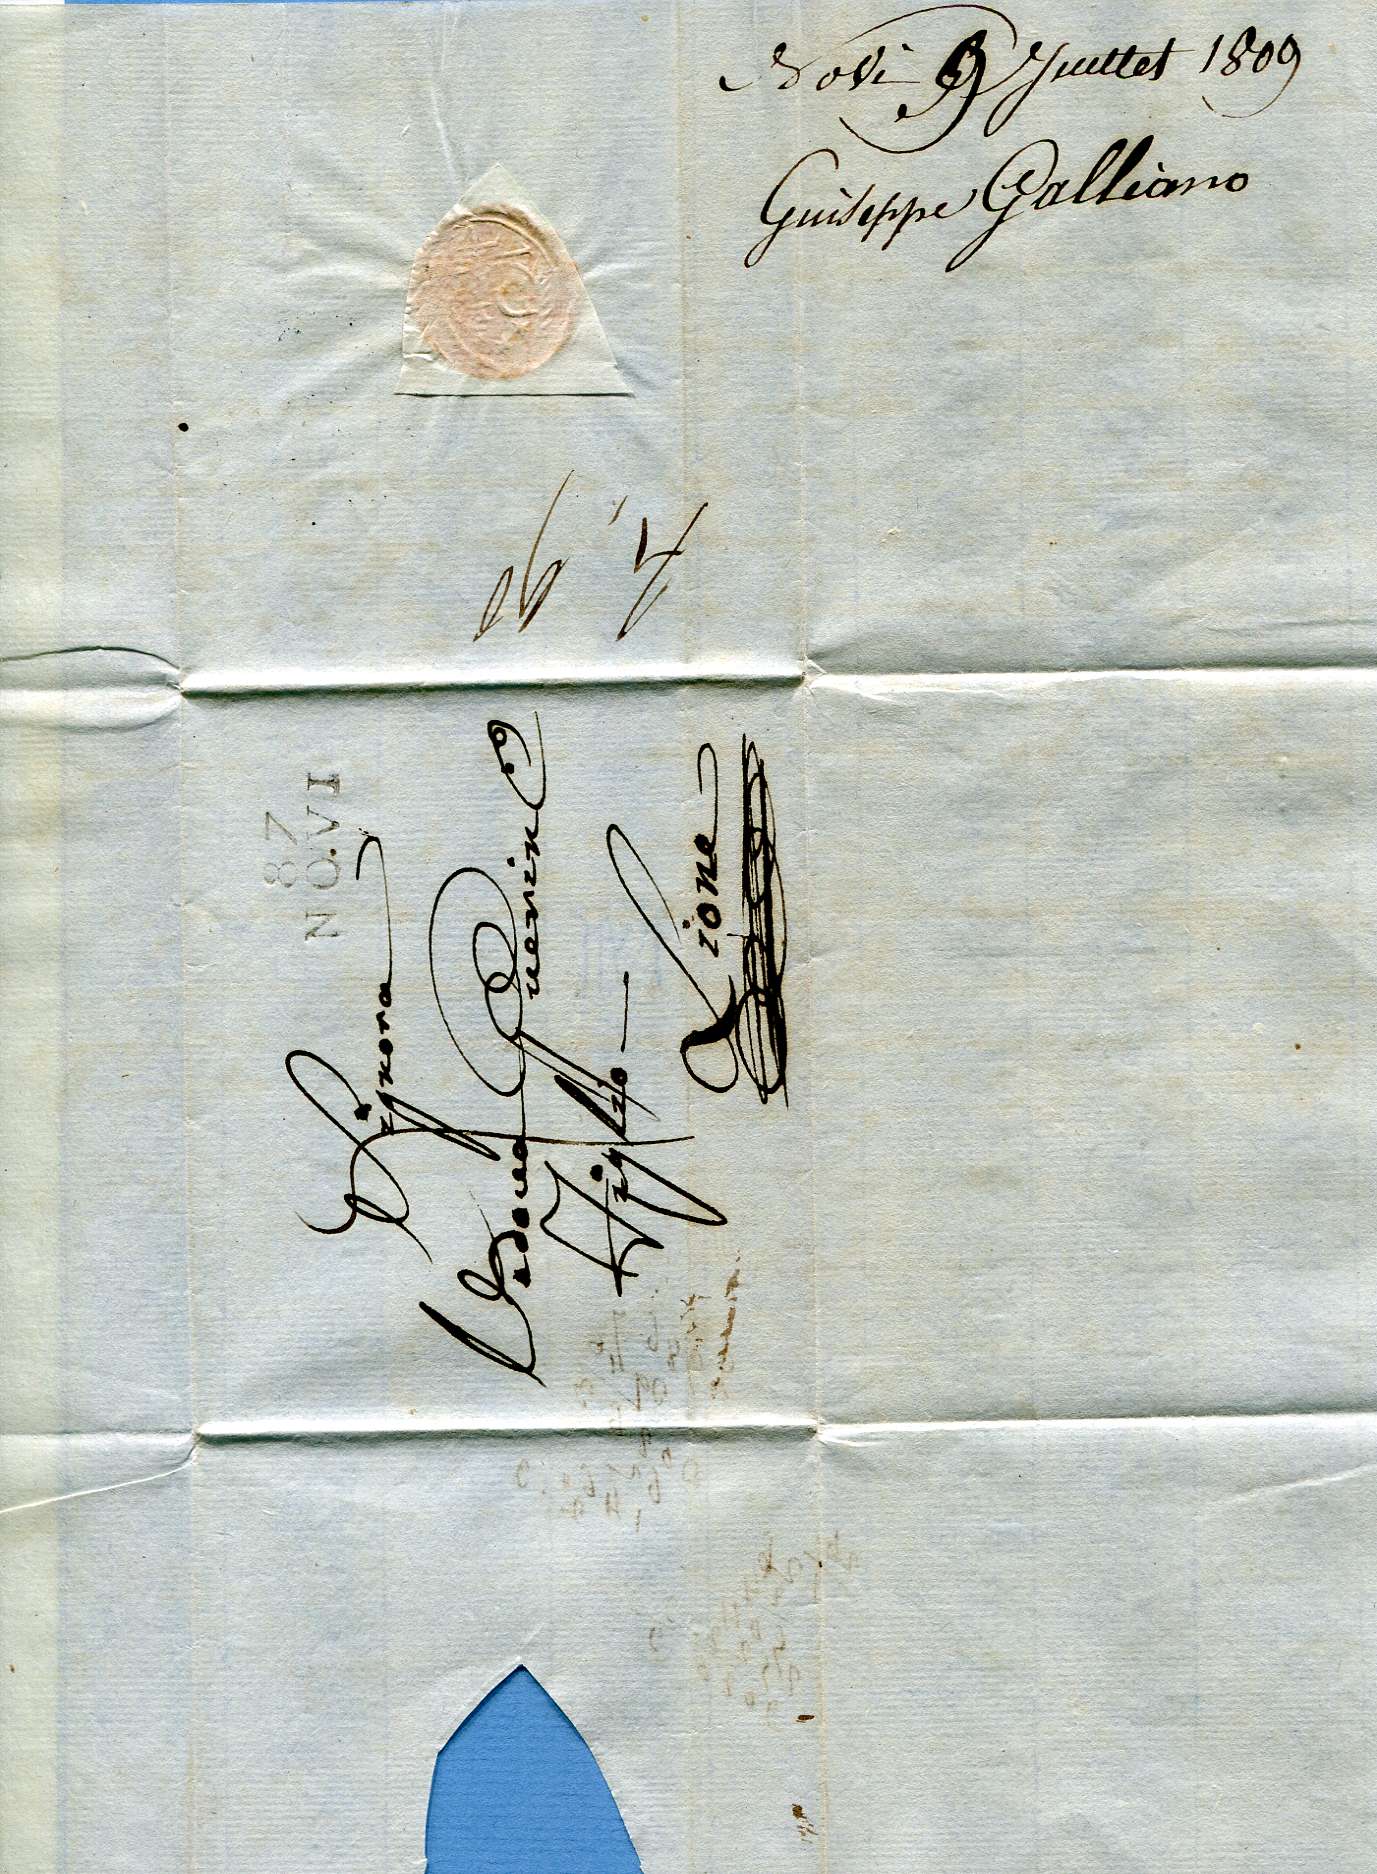 Novi 9 Juillet 1809
Guiseppe Galliano
87
NOVI
Signora
Vedova Guerin
& Figlio
Lione